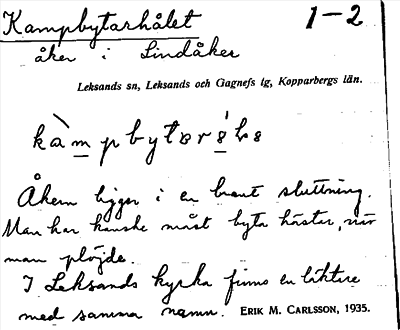 Kampbytarhålet 1-2
åker i Lindåker
Leksands sn, Leksands och Gagnefs tg, Kopparbergs län.
Åkern ligger i en brant sluttning.
Man har kanske måst byta hästar, när
man plöjde.
I Leksands kyrka finns en läktare
med samma namn. ERIK M. CARLSSON, 1935.